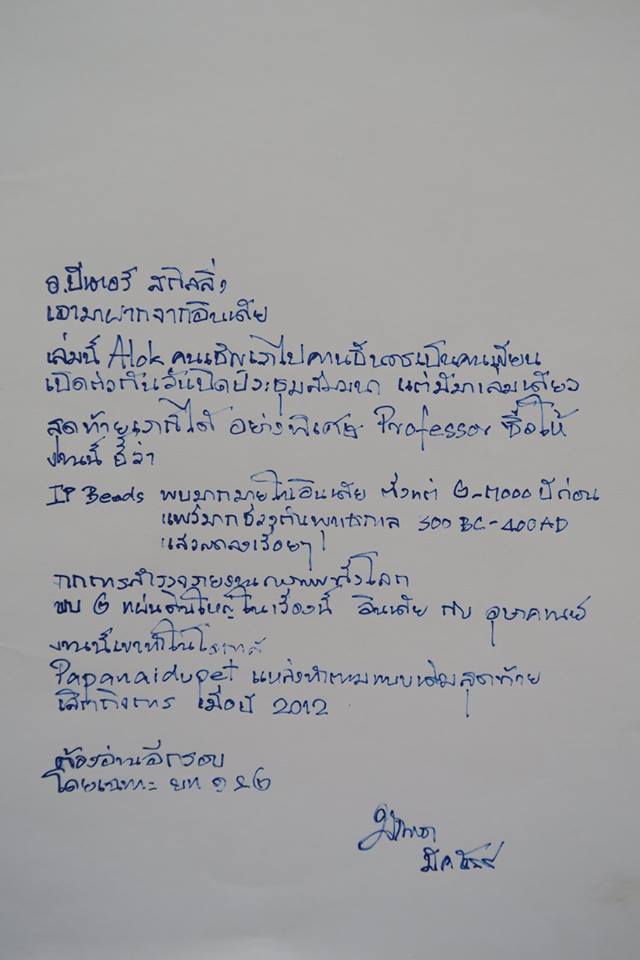 อ.ปีเตอร์ สกิลลิ่ง
เอามาฝากจากอินเดีย
เล่มนี้ Alok คนเชิญเราไป เป็นคนเขียน
เปิดตัวกันวันเปิดประชุมสัมมนา แต่มีมาเล่มเดียว
สุดท้ายเราก็ได้ อย่างพิเศษ Professor ซื้อให้
งานนี้ ชี้ว่า
IP Beads พบมากมายในอินเดีย ตั้งแต่ ๒-๓๐๐๐ ปีก่อน
แพร่มากช่วงต้นพุทธกาล 300 BC-400 AD
แล้วลดลงเรื่อยๆ
จากการสำรวจรายงาน ทั่วโลก
พบ ๒ แผ่นดินใหญ่ในเรื่องนี้ อินเดีย กับ อุษาคเนย์
งานนี้เขาทำใน
Papanaidupet แหล่งทำตามแบบเดิมสุดท้าย
เลิกกิจการ เมื่อปี 2012
ต้องอ่านอีกรอบ
โดยเฉพาะ บท ๑ ๒